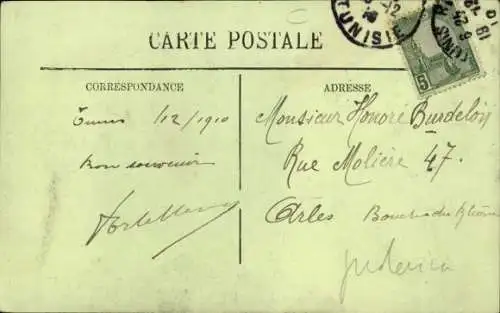 TUNISIE
CARTE POSTALE
5
CORRESPONDANCE
ADRESSE
Tunis 1/12/1910
Bon souvenir
Monsieur Honoré Burdeloy
Rue Molière 47.
Arles Bouches du Rhône